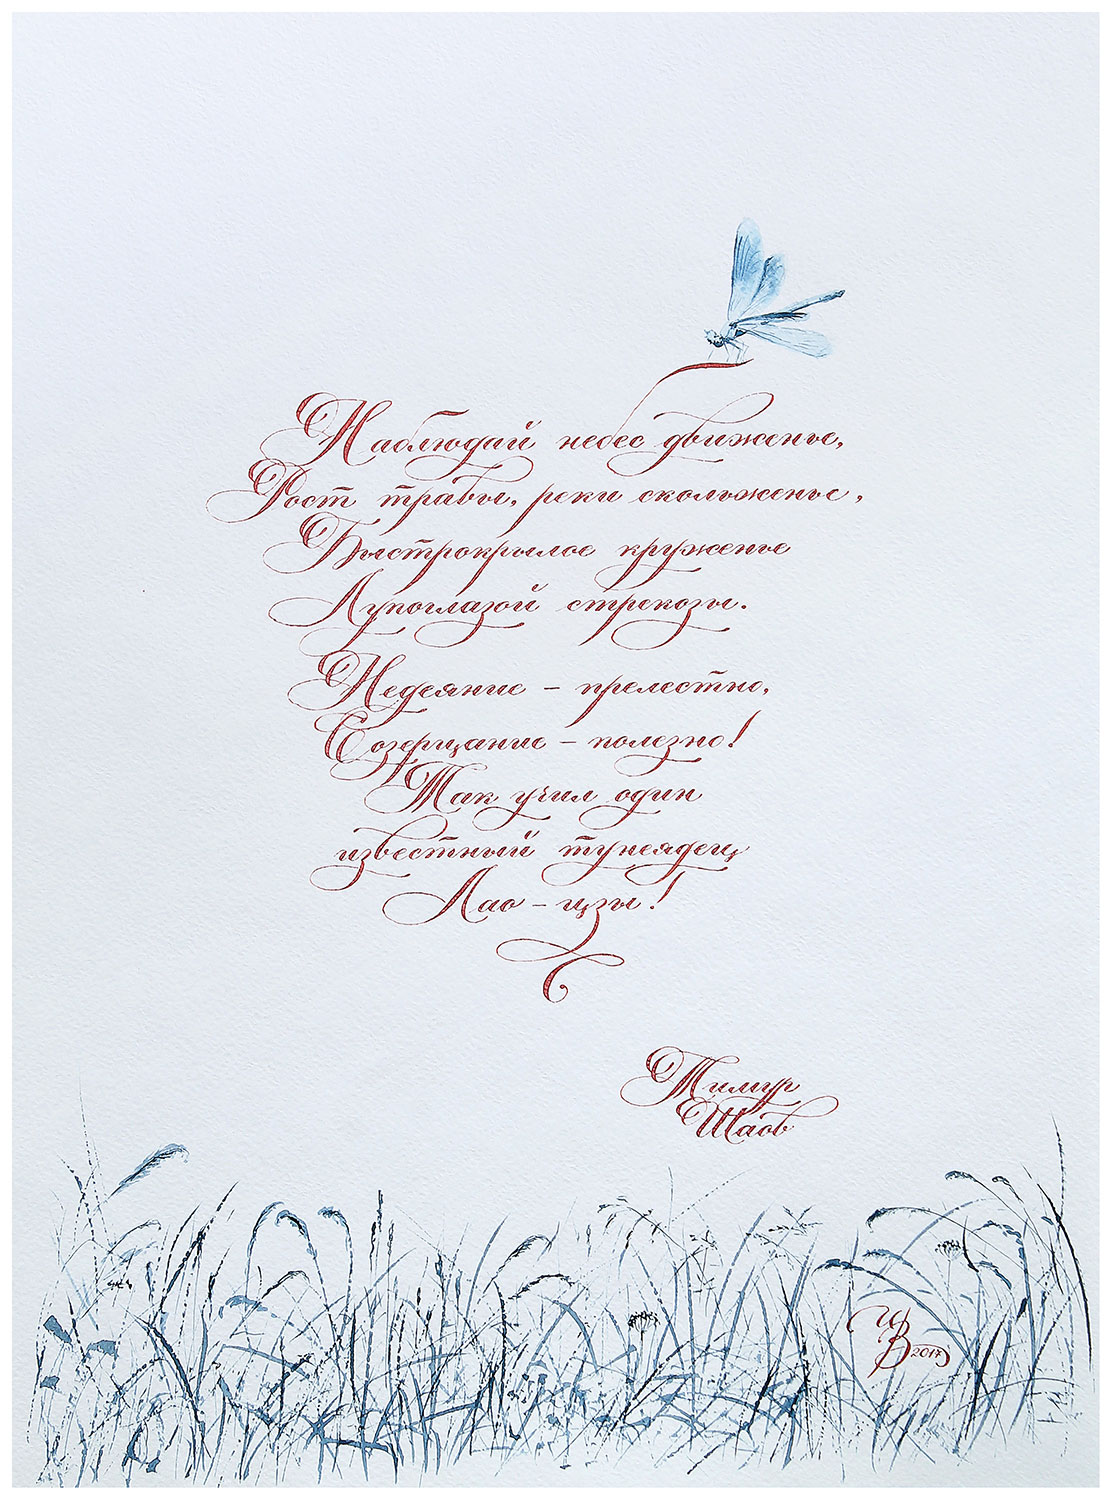 Наблюдай небес движенье,
Рост травы, реки скольженье,
Быстрокрылое круженье
Лупоглазой стрекозы.
Недеяние – прелестно,
Созерцание – полезно!
Так учил один
известный тунеядец
Лао-цзы!
Тимур
Шаов
ИВ 2017